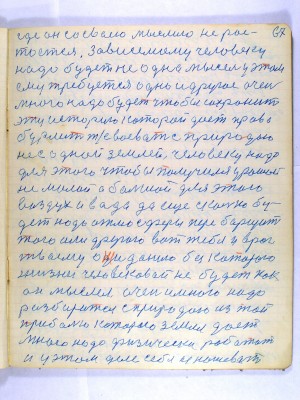 67
где он со своею мыслию не рас-
тоется. Зависемому человеку
надо будет не одна мысел у этом
ему требуется одно и другое очен
много надо будет чтобы сохранит
эту историю которой дает право
бурлит т/своеват с природою
не с одной землей, человеку надо
для этого чтобы получился дражой
не милой а бланой для этого
воздух и вада да еще скажю бу-
дет надо атмосферы
того или другого вот тебя и враг
твоему ожиданию без которого
жизни человеческой не будет как
он мыслел очен много надо
разбиратся с природою из той
прибалю которого земля дает
много надо физически работат
и у этом деле себя